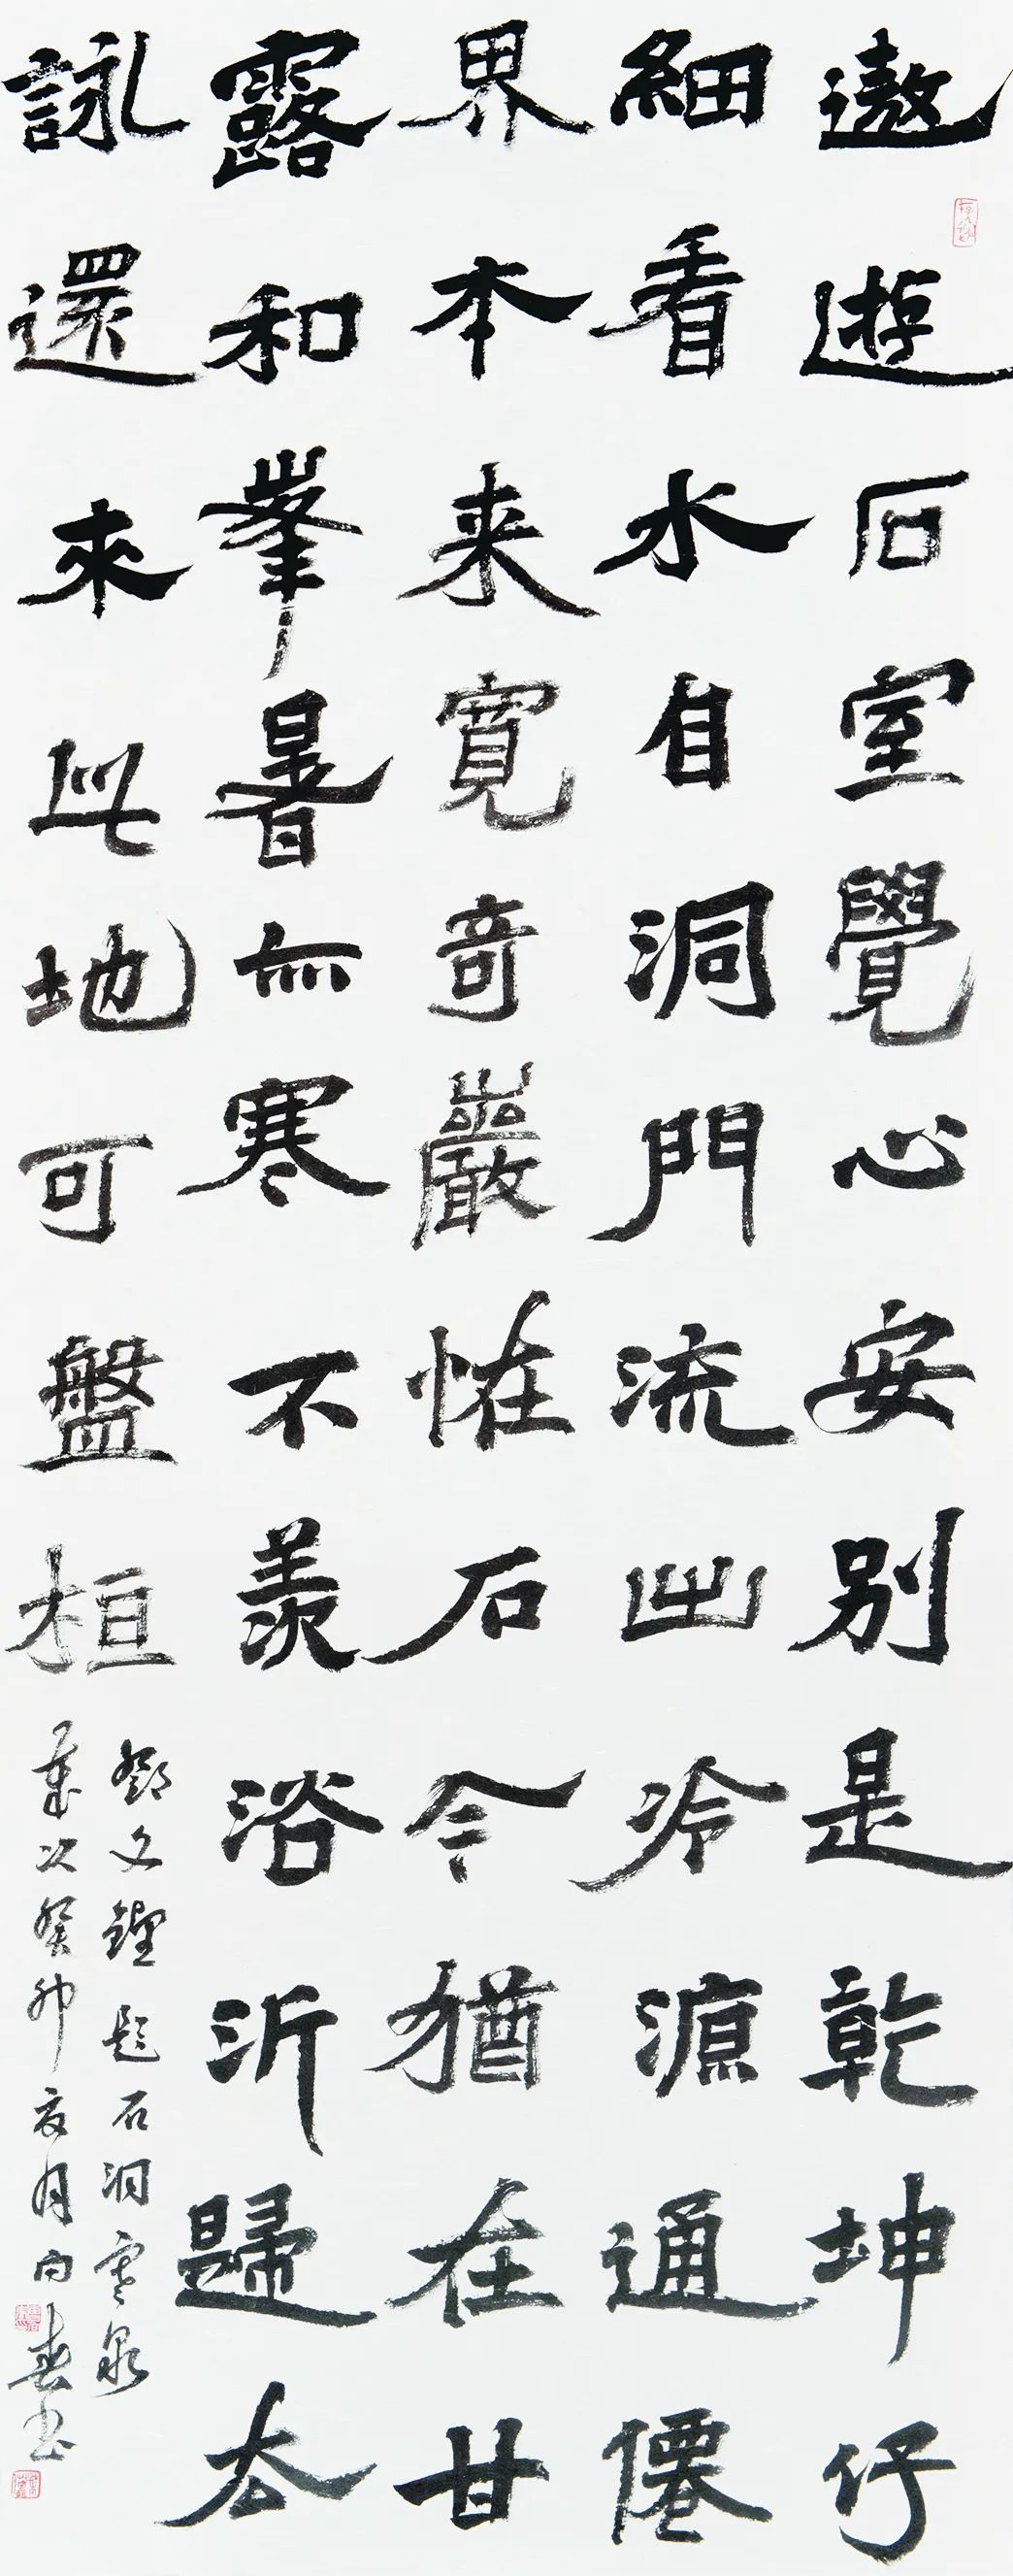 遨遊石室覺心安別是乾坤仔
細看水自洞門流出冷源通僊
界本来寬奇巖恠石今猶在甘
露和峯暑無寒不羨浴沂歸去
詠還來此地可盤桓
鄧文鏗題石洞靈泉
歲次癸卯夏月向春书